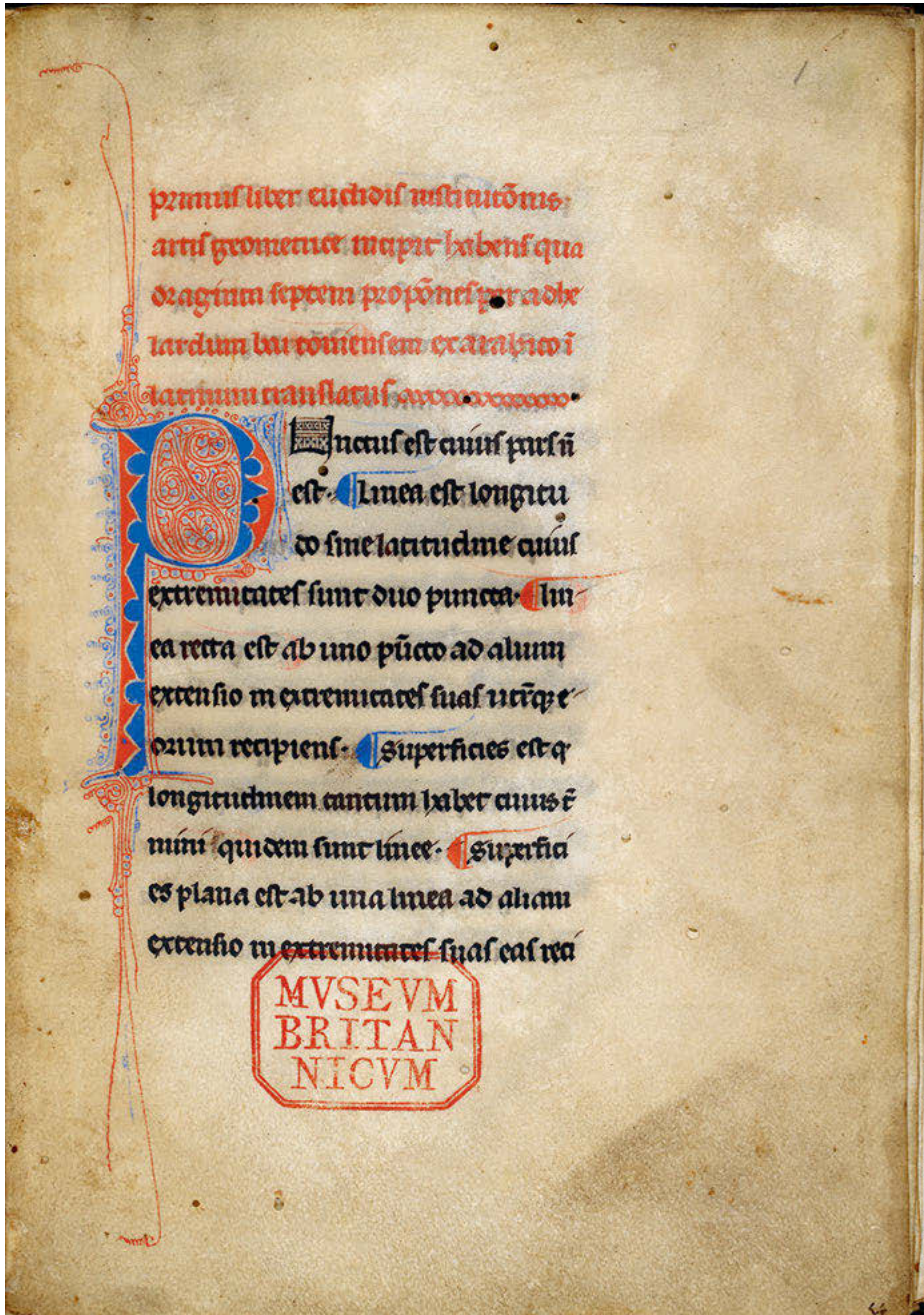 1
primus liber euclidis institutōnis
artis geometrice incipit habens qua
draginta septem propōnes per adhe
lardum batoniensem ex arabico ī
latinum translatus
Punctus est cuius pars ñ
est. Linea est longitu
do sine latitudine cuius
extremitates sunt duo puncta. lin-
ea recta est ab uno pūcto ad alium
extensio in extremitates suas utrque
orum recipiens. Superficies est q
longitudinem tantum habet cuius t̄
mini quidem sunt linee. Superfici
es plana est ab una linea ad aliam
extensio in extremitates suas eas reci
MVSEVM
BRITAN
NICVM